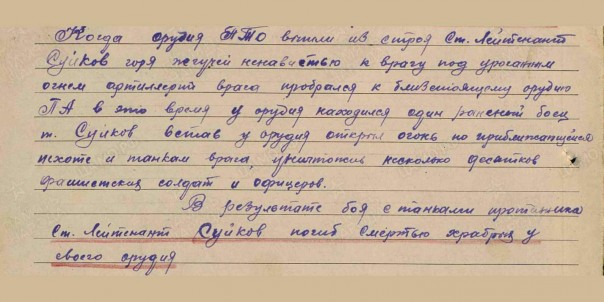 Когда орудия ПТО вышли из строя Ст. Лейтенант
Суйков горя жгучей ненавистью к врагу под ураганным
огнем артиллерий врага пробрался к близстоящему орудию
ПА в это время у орудия находился один раненый боец
т. Суйков встав у орудия открыл огонь по приближающейся
пехоте и танкам врага, уничтожив несколько десятков
фашистских солдат и офицеров.
В результате боя с танками противника
Ст. Лейтенант Суйков погиб смертью храбрых у
своего орудия